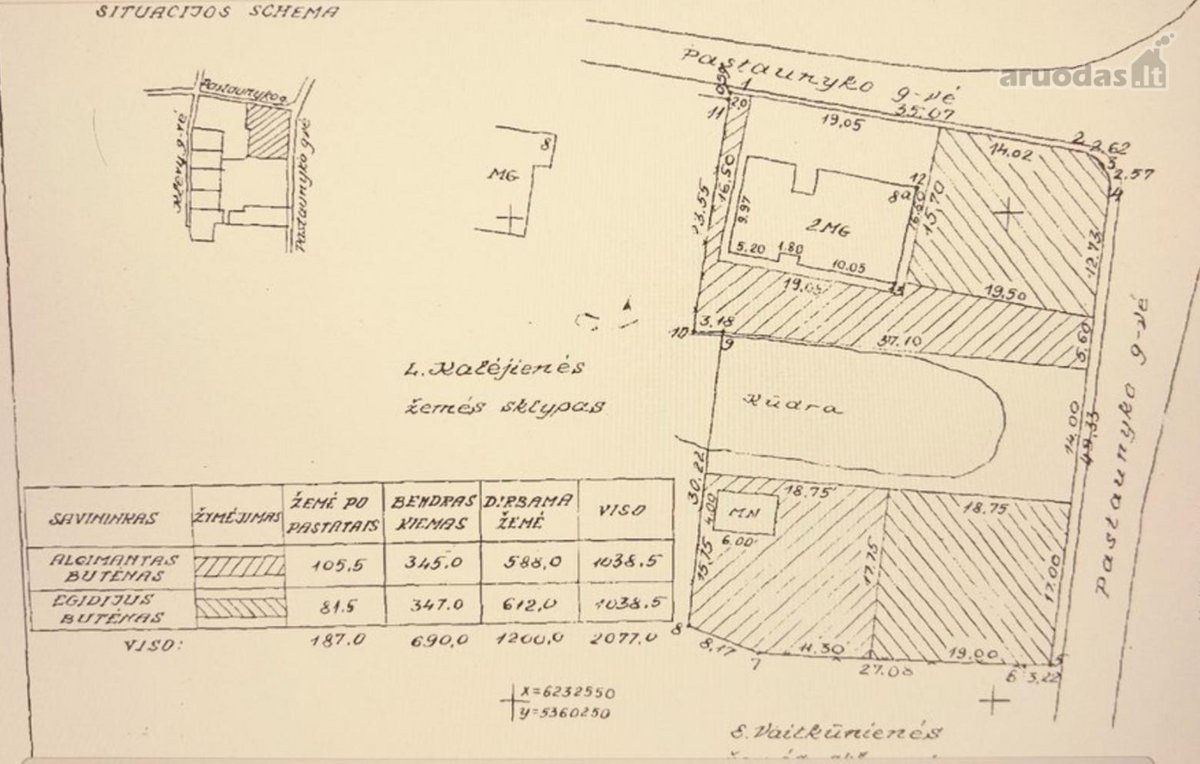 SITUACIJOS SCHEMA
aruodas.lt
Pastaunyko g-vė
Pastaunyko g.
Pastaunyko g-vė
MG
8
1
35.07
2
2.62
3
2.57
4
11
2.0
19.05
14.02
12
8a
16.50
9.97
2MG
16.60
15.70
12.73
5.20
1.80
10.05
13
19.05
19.50
10
3.18
9
37.10
5.60
Pastaunyko g-vė
L. Kalėjienės
žemės sklypas
Kūdra
14.00
49.33
30.22
4.00
MN
6.00
18.75
18.75
15.75
17.75
17.00
SAVININKAS ŽYMĖJIMAS ŽEMĖ PO PASTATAIS BENDRAS KIEMAS DIRBAMA ŽEMĖ VISO
ALGIMANTAS BUTĖNAS 105.5 345.0 588,0 1038.5
EGIDIJUS BUTĖNAS 81.5 347.0 612,0 1038.5
VISO: 187.0 690,0 1200,0 2077.0
8
8.17
7
11.30
27.08
19.00
6
3.22
5
x=6232550
y=5360250
E. Vaitkūnienės